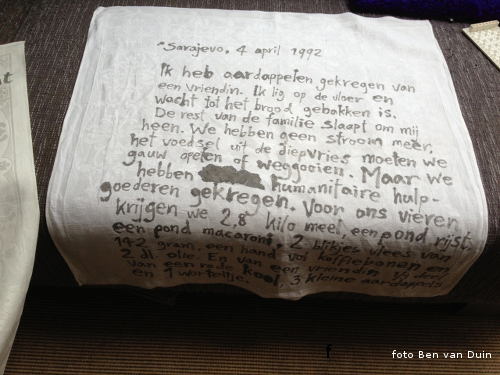 "Sarajevo, 4 april 1992
Ik heb aardappelen gekregen van
een vriendin. Ik lig op de vloer en
wacht tot het brood gebakken is.
De rest van de familie slaapt om mij
heen. We hebben geen stroom meer,
het voedsel uit de diepvries moeten we
gauw opeten of weggooien. Maar we
hebben humanitaire hulp-
goederen gekregen. Voor ons vieren
krijgen we 2,8 kilo meel, een pond rijst,
een pond macaroni, 2 blikjes vlees van
142 gram, een hand vol koffiebonen en
2 dl. olie. En van een vriendin 1/2
van een rode kool, 3 kleine aardappels
en 1 worteltje.
foto Ben van Duin